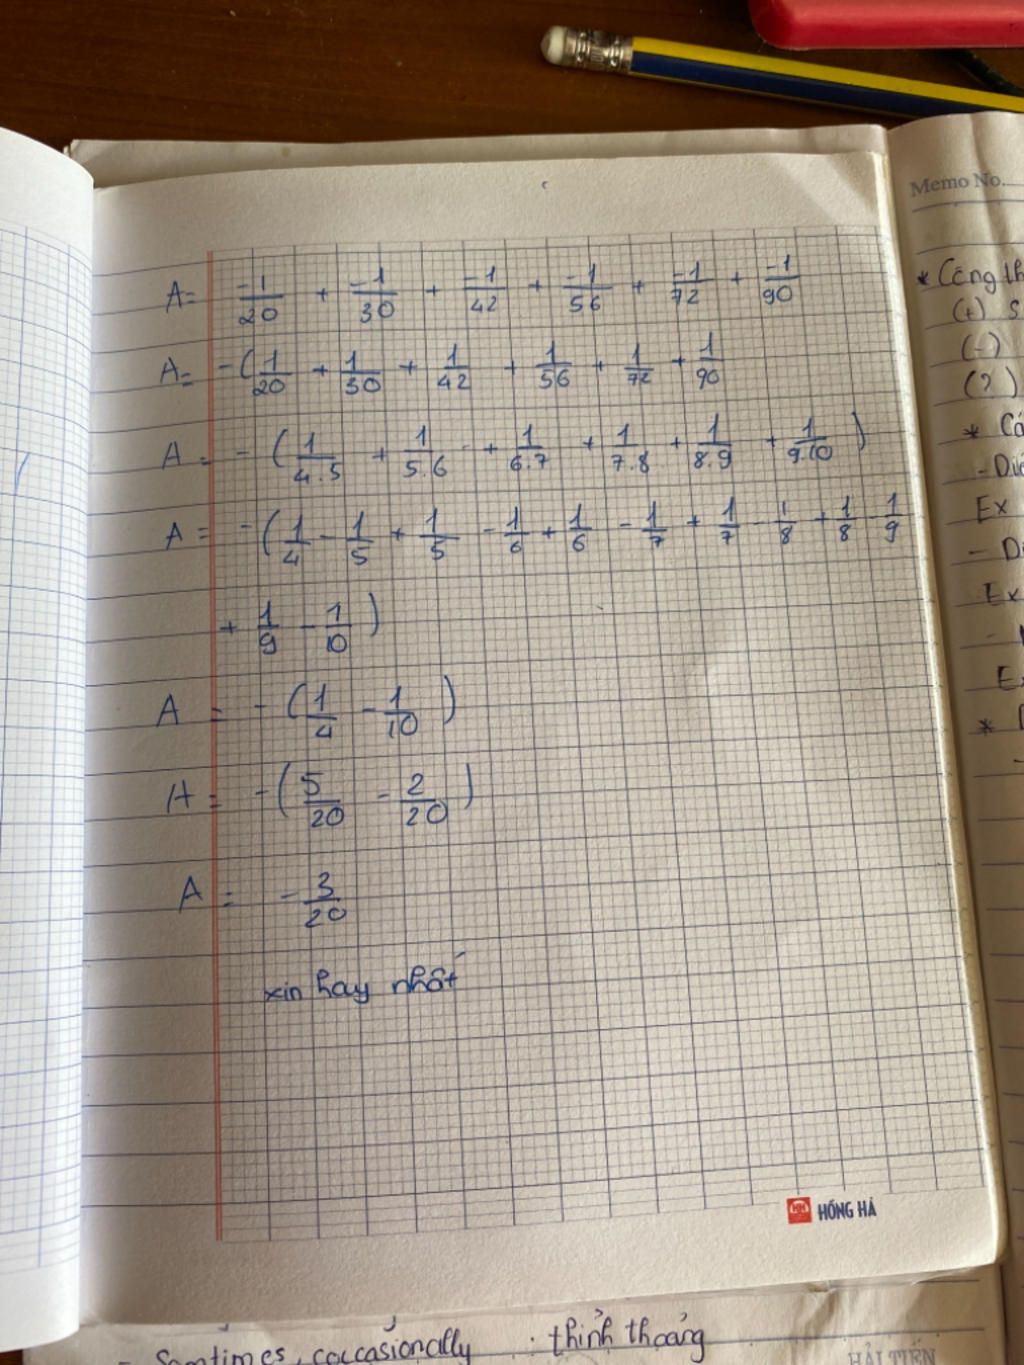 Memo No....
A = -1/20 + -1/30 + -1/42 + -1/56 + -1/72 + -1/90
A = -(1/20 + 1/30 + 1/42 + 1/56 + 1/72 + 1/90
A = -(1/4.5 + 1/5.6 + 1/6.7 + 1/7.8 + 1/8.9 + 1/9.10)
A = -(1/4 - 1/5 + 1/5 - 1/6 + 1/6 - 1/7 + 1/7 - 1/8 + 1/8 - 1/9
+ 1/9 - 1/10)
A = -(1/4 - 1/10)
A = -(5/20 - 2/20)
A = -3/20
xin hay nhất
HỒNG HÀ
* Công th
(+) S
(-)
(?)
* Cá
Ex
Ex
*
- Somtimes, coccasionally : thỉnh thoảng
HẢI TIẾN